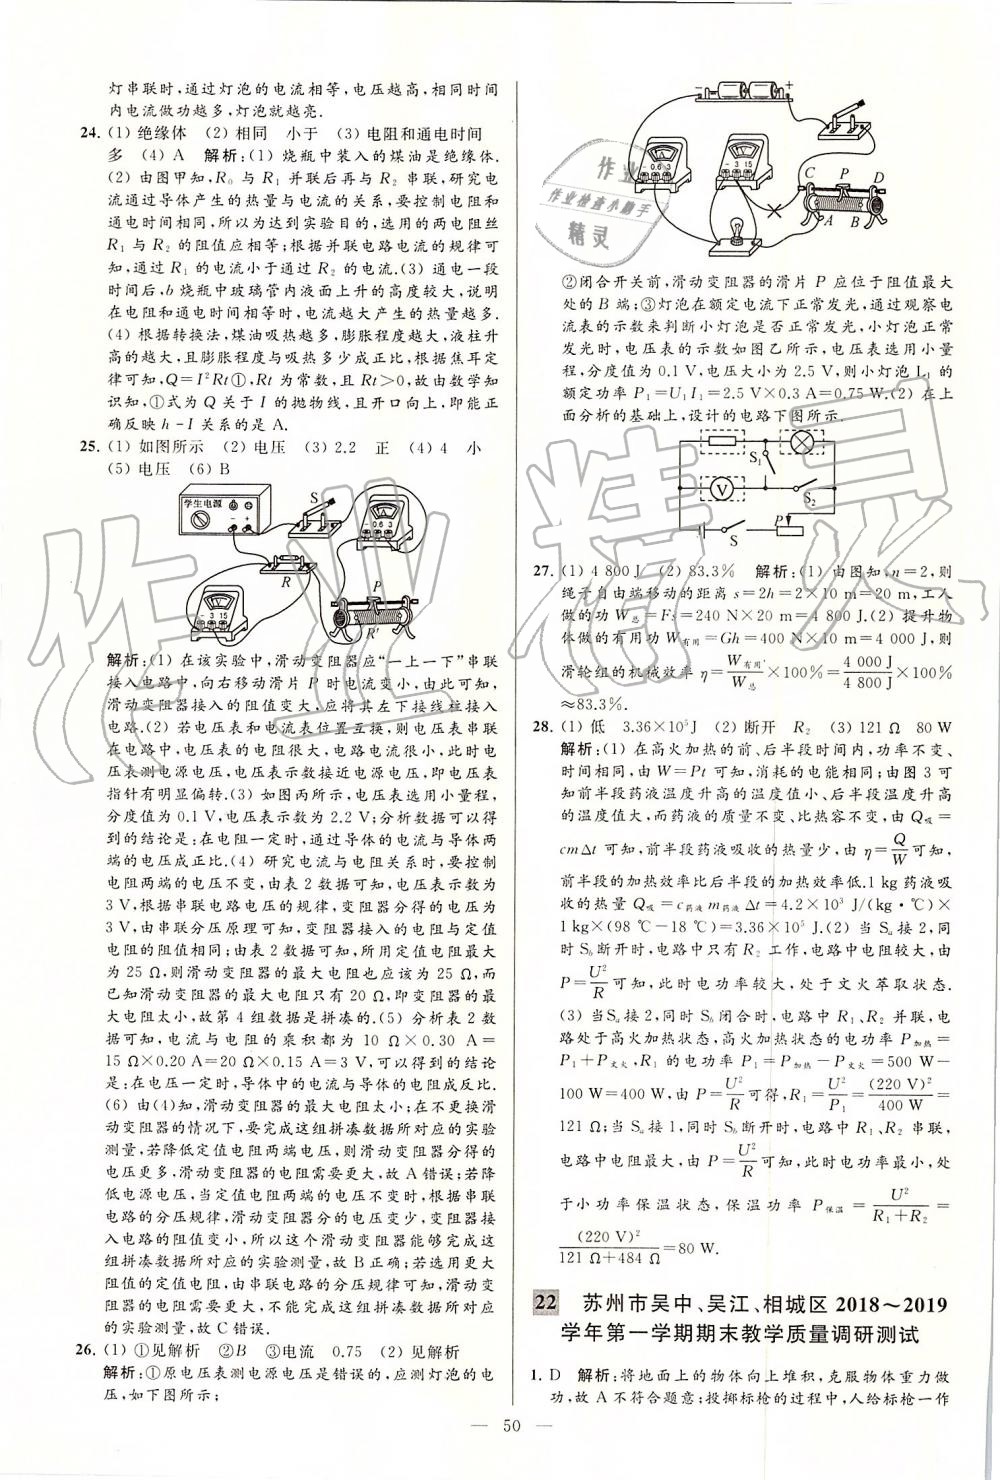 灯串联时,通过灯泡的电流相等,电压越高,相同时间
内电流做功越多,灯泡就越亮.
24. (1) 绝缘体 (2) 相同 小于 (3) 电阻和通电时间
多 (4) A 解析:(1) 烧瓶中装入的煤油是绝缘体.
(2) 由图甲可知,R₀与R₁并联后再与R₂串联,研究电
流通过导体产生的热量与电流的关系,要控制电阻和
通电时间相同,所以为达到实验目的,选用的两电阻丝
R₁与R₂的阻值应相等;根据并联电路电流的规律可
知,通过R₁的电流小于通过R₂的电流.(3) 通电一段
时间后,b烧瓶中玻璃管内液面上升的高度较大,说明
在电阻和通电时间相等时,电流越大产生的热量越多.
(4) 根据转换法,煤油吸热越多,膨胀程度越大,液柱升
高的越大,且膨胀程度与吸热多少成正比,根据焦耳定
律可知,Q=I²Rt①,Rt为常数,且Rt>0,故由数学知
识知,①式为Q关于I的抛物线,且开口向上,即能正
确反映h-I关系的是A.
25. (1) 如图所示 (2) 电压 (3) 2.2 正 (4) 4 小
(5) 电压 (6) B
学生电源
S
A
-0.6 3
R
P
R′
V
-3 15
解析:(1) 在该实验中,滑动变阻器应“一上一下”串联
接入电路中,向右移动滑片P时电流变小,由此可知,
滑动变阻器接入的阻值变大,应将其左下接线柱接入
电路.(2) 若电压表和电流表位置互换,则电压表串联
在电路中,电压表的电阻很大,电路电流很小,此时电
压表测电源电压,电压表示数接近电源电压,即电压表
指针有明显偏转.(3) 如图丙所示,电压表选用小量程,
分度值为0.1 V,电压表示数为2.2 V;分析数据可以得
到的结论是:在电阻一定时,通过导体的电流与导体两
端的电压成正比.(4) 研究电流与电阻关系时,要控制
电阻两端的电压不变,由表2数据可知,电压表示数为
3 V,根据串联电路电压的规律,变阻器分得的电压为
3 V,由串联分压原理可知,变阻器接入的电阻与定值
电阻的阻值相同;由表2数据可知,所用定值电阻最大
为25 Ω,则滑动变阻器的最大电阻也应该为25 Ω,而
已知滑动变阻器的最大电阻只有20 Ω,即变阻器的最
大电阻太小,故第4组数据是拼凑的.(5) 分析表2数
据可知,电流与电阻的乘积都为10 Ω×0.30 A=
15 Ω×0.20 A=20 Ω×0.15 A=3 V,可得到的结论
是:在电压一定时,导体中的电流与导体的电阻成反比.
(6) 由(4)知,滑动变阻器的最大电阻太小;在不更换滑
动变阻器的情况下,要完成这组拼凑数据所对应的实验
测量,若降低定值电阻两端电压,则滑动变阻器分得的
电压更多,滑动变阻器的电阻需要更大,故A错误;若降
低电源电压,当定值电阻两端的电压不变时,根据串联
电路的分压规律,滑动变阻器分的电压变少,变阻器接
入电阻变小,所以这个滑动变阻器能够完成这
组拼凑数据所对应的实验测量,故B正确;若选用更大
阻值的定值电阻,由串联电路的分压规律可知,滑动变
阻器的电阻需要更大,不能完成这组数据所对应的实验
测量,故C错误.
26. (1) ①见解析 ②B ③电流 0.75 (2) 见解析
解析:①原电压表测电源电压是错误的,应测灯泡的电
压,如下图所示;
- +
A
-0.6 3
V
-3 15
C P D
A B
②闭合开关前,滑动变阻器的滑片P应位于阻值最大
处的B端;③灯泡在额定电流下正常发光,通过观察电
流表的示数来判断小灯泡是否正常发光,小灯泡正常
发光时,电压表的示数如图乙所示,电压表选用小量
程,分度值为0.1 V,电压大小为2.5 V,则小灯泡L₁的
额定功率P₁=U₁I₁=2.5 V×0.3 A=0.75 W.(2) 在上
面分析的基础上,设计的电路下图所示.
S₁
V
S₂
S
P
27. (1) 4 800 J (2) 83.3% 解析:(1) 由图知,n=2,则
绳子自由端移动的距离s=2h=2×10 m=20 m,工人
做的功W总=Fs=240 N×20 m=4 800 J.(2) 提升物
体做的有用功W有用=Gh=400 N×10 m=4 000 J,则
滑轮组的机械效率η=W有用/W总×100%=4 000 J/4 800 J×100%
≈83.3%.
28. (1) 低 3.36×10⁵J (2) 断开 R₂ (3) 121 Ω 80 W
解析:(1) 在高火加热的前、后半段时间内,功率不变、
时间相同,由W=Pt可知,消耗的电能相同;由图3可
知前半段药液温度升高的温度值小、后半段温度升高
的温度值大,而药液的质量不变、比热容不变,由Q吸=
cmΔt可知,前半段药液吸收的热量少,由η=Q/W可知,
前半段的加热效率比后半段的加热效率低.1 kg药液吸
收的热量Q吸=c药液m药液Δt=4.2×10³ J/(kg·℃)×
1 kg×(98 ℃-18 ℃)=3.36×10⁵ J.(2) 当Sₐ接2,同
时S_b断开时,电路中只有R₂工作,电路中电阻较大,由
P=U²/R可知,此时电功率较大,处于文火萃取状态.
(3) 当Sₐ接2,同时S_b闭合时,电路中R₁、R₂并联,电
路处于高火加热状态,高火加热状态的电功率P加热=
P₁+P文火,R₁的电功率P₁=P加热-P文火=500 W-
100 W=400 W,由P=U²/R可得,R₁=U²/P₁=(220 V)²/400 W=
121 Ω;当Sₐ接1,同时S_b断开时,电路中R₁、R₂串联,
电路中电阻最大,由P=U²/R可知,此时电功率最小,处
于小功率保温状态,保温功率P保温=U²/(R₁+R₂)=
(220 V)²/(121 Ω+484 Ω)=80 W.
22 苏州市吴中、吴江、相城区2018～2019
学年第一学期期末教学质量调研测试
1. D 解析:将地面上的物体向上堆积,克服物体重力做
功,故A不符合题意;投掷标枪的过程中,人给标枪一作
— 50 —
作业
作业检查小助手
精灵
作业精灵